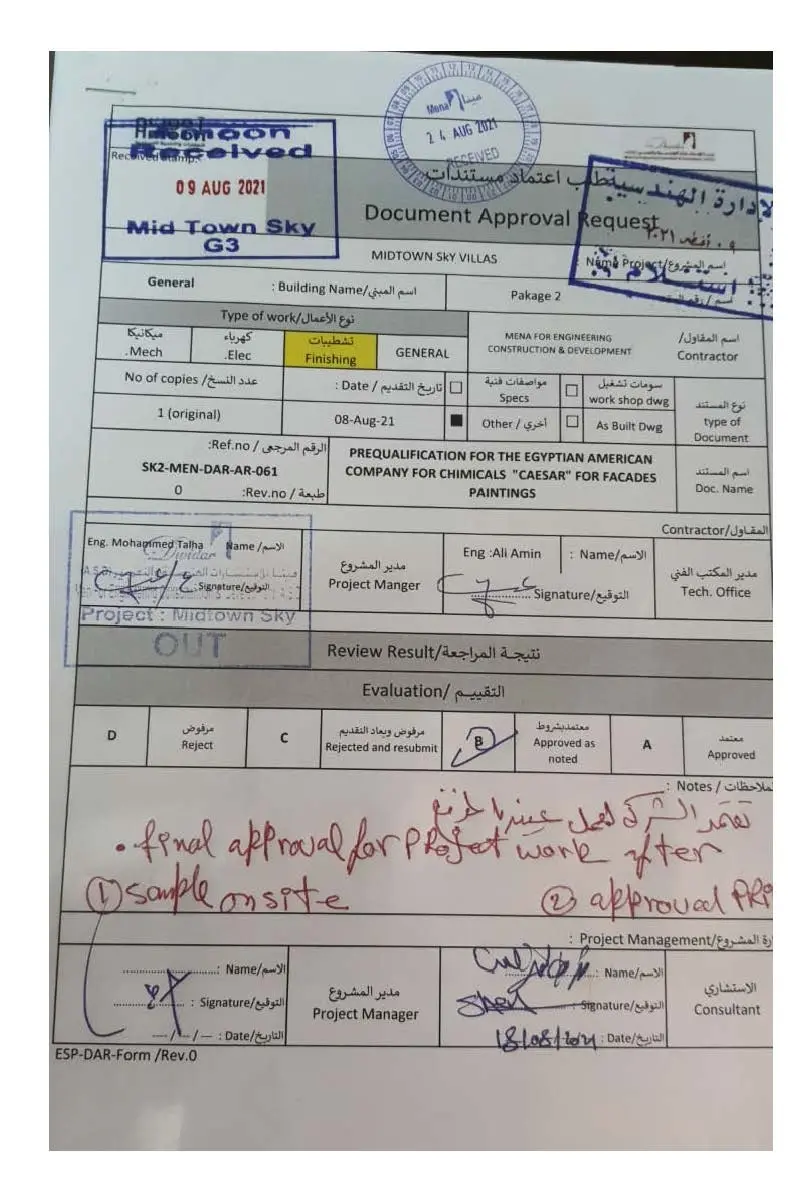 Mena مينا
24 AUG 2021
RECEIVED
Received stamp:
Received
09 AUG 2021
Mid Town Sky
G3
طلب اعتماد مستندات
Document Approval Request
الإدارة الهندسية
استلام
MIDTOWN SKY VILLAS
Name Project/اسم المشروع :
General
: Building Name/اسم المبني
Pakage 2
Type of work/نوع الأعمال
ميكانيكا
.Mech
كهرباء
.Elec
تشطيبات
Finishing
GENERAL
MENA FOR ENGINEERING
CONSTRUCTION & DEVELOPMENT
اسم المقاول/
Contractor
No of copies /عدد النسخ
: Date / تاريخ التقديم
مواصفات فنية
Specs
سومات تشغيل
work shop dwg
نوع المستند
type of
Document
1 (original)
08-Aug-21
Other / أخري
As Built Dwg
:Ref.no / الرقم المرجعى
SK2-MEN-DAR-AR-061
0
:Rev.no / طبعة
PREQUALIFICATION FOR THE EGYPTIAN AMERICAN
COMPANY FOR CHIMICALS "CAESAR" FOR FACADES
PAINTINGS
اسم المستند
Doc. Name
Contractor/المقاول
Eng. Mohammed Talha
Name /الاسم
Signature/التوقيع
مدير المشروع
Project Manger
Eng :Ali Amin
: Name/الاسم
Signature/التوقيع
مدير المكتب الفني
Tech. Office
Dwidar
Project : Midtown Sky
OUT
Review Result/نتيجة المراجعة
Evaluation/ التقييم
D
مرفوض
Reject
C
مرفوض ويعاد التقديم
Rejected and resubmit
B
معتمدبشروط
Approved as
noted
A
معتمد
Approved
: Notes / ملاحظات
تعتمد الشركة لعمل عينة بالموقع
• final approval for project work after
① sample on site
② approved PRi
: Project Management/رة المشروع
: Name/الاسم
: Signature/التوقيع
: Date/التاريخ
مدير المشروع
Project Manager
: Name/الاسم
: Signature/التوقيع
18/08/2021 : Date/التاريخ
الاستشاري
Consultant
ESP-DAR-Form /Rev.0